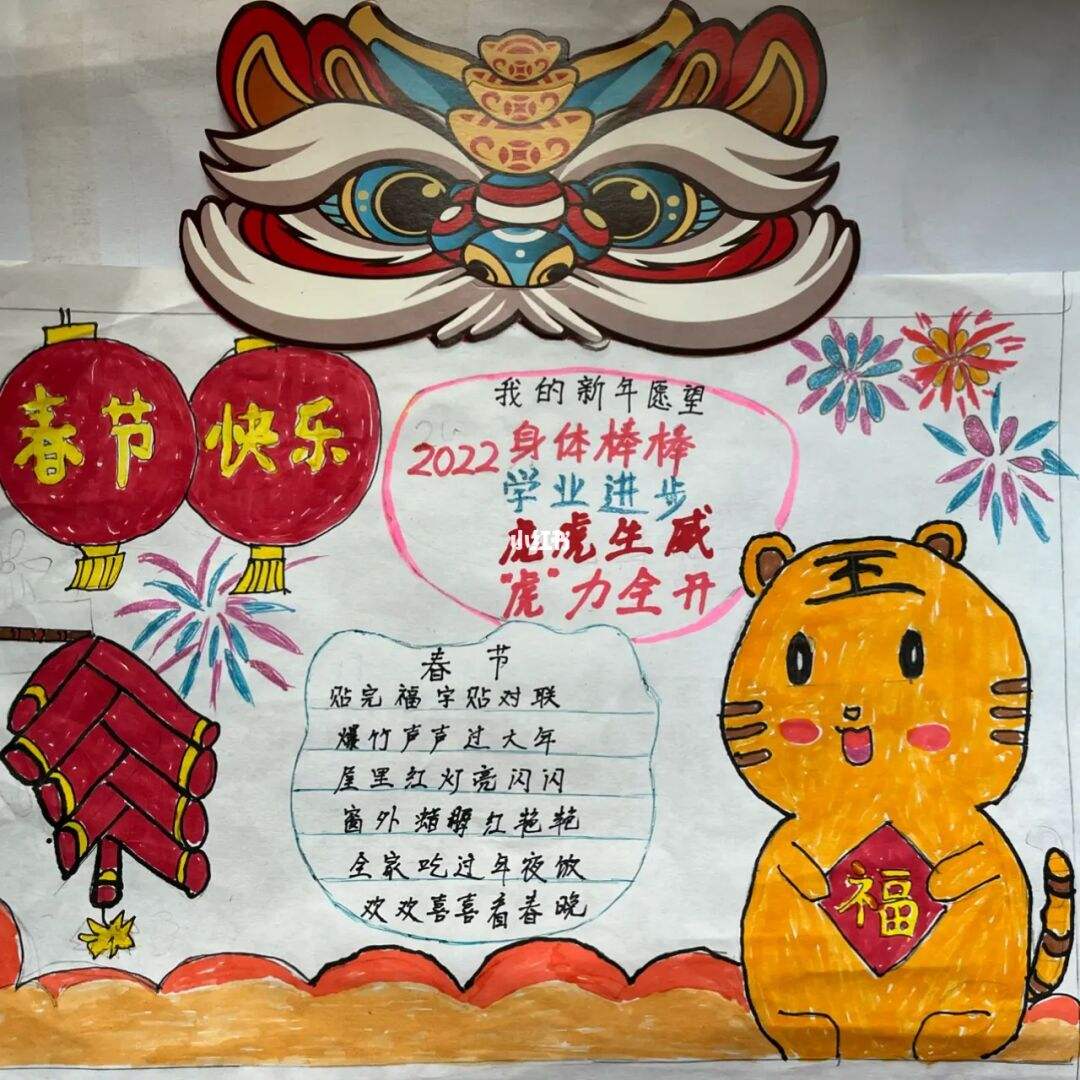 春节
快乐
我的新年愿望
2022身体棒棒
学业进步
虎虎生威
小红书
"虎"力全开
王
春节
贴完福字贴对联
爆竹声声过大年
屋里红灯亮闪闪
窗外 红艳艳
全家吃过年夜饭
欢欢喜喜看春晚
福